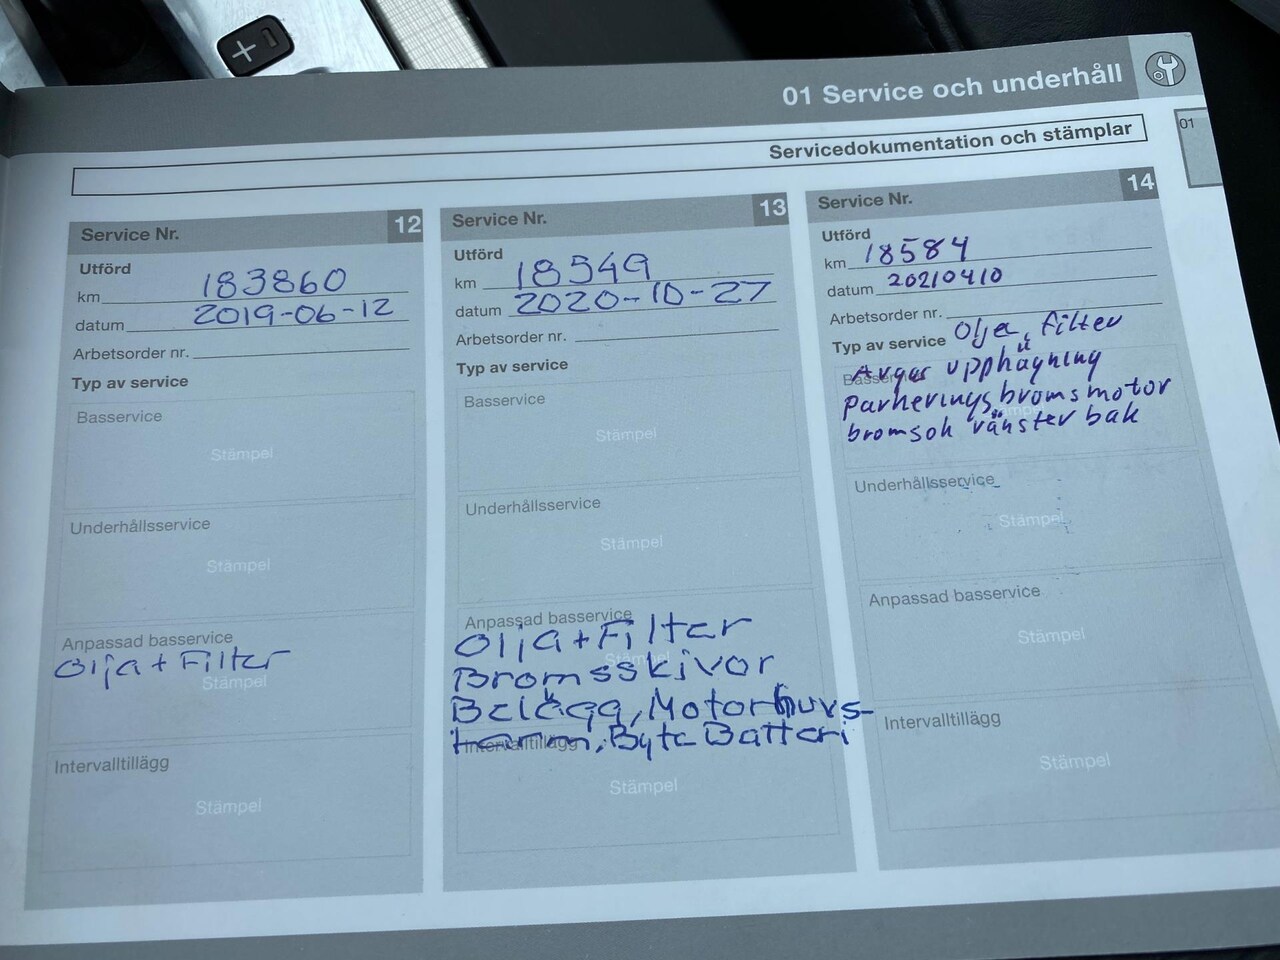 + -
01 Service och underhåll
Servicedokumentation och stämplar
01
Service Nr. 12
Utförd
km 183860
datum 2019-06-12
Arbetsorder nr.
Typ av service
Basservice
Stämpel
Underhållsservice
Stämpel
Anpassad basservice
Olja + Filter
Stämpel
Intervalltillägg
Stämpel
Service Nr. 13
Utförd
km 18549
datum 2020-10-27
Arbetsorder nr.
Typ av service
Basservice
Stämpel
Underhållsservice
Stämpel
Anpassad basservice
Olja + Filter
Stämpel
Bromsskivor
Belägg, Motorhuvs-
larm, Byte Batteri
Intervalltillägg
Stämpel
Service Nr. 14
Utförd
km 18584
datum 20210410
Arbetsorder nr.
Typ av service Olja, filter
Avgas upphägning
Basservice
Parkerings bromsmotor
Stämpel
bromsok vänster bak
Underhållsservice
Stämpel
Anpassad basservice
Stämpel
Intervalltillägg
Stämpel